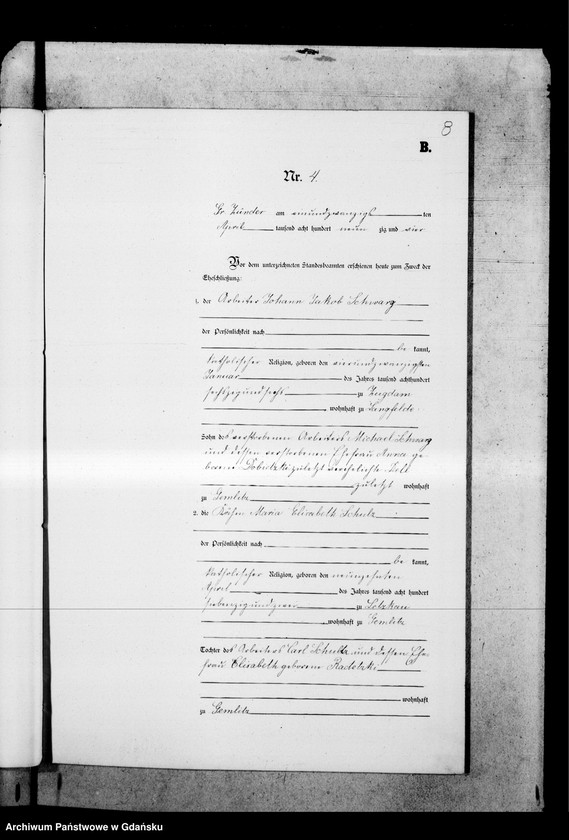 8
B.
Nr. 4.
Gr. Zünder am einundzwanzigs ten
April tausend acht hundert neun zig und vier
Vor dem unterzeichneten Standesbeamten erschienen heute zum Zweck der
Eheschließung:
1. der Arbeiter Johann Jakob Schwarz
der Persönlichkeit nach
be kannt,
katholischer Religion, geboren den vierundzwanzigsten
Januar des Jahres tausend achthundert
sechszigundsechs zu Zugdam
wohnhaft zu Langfelde
Sohn des verstorbenen Arbeiters Michael Schwarz
und dessen verstorbenen Ehefrau Anna ge-
borene zuletzt verehelichte
zuletzt wohnhaft
zu Gemlitz
2. die Maria Elisabeth Schulz
der Persönlichkeit nach
be kannt,
katholischer Religion, geboren den neunzehnten
April des Jahres tausend acht hundert
siebenzigundzwei zu Letzkau
wohnhaft zu Gemlitz
Tochter des Arbeiters Carl Schulz und dessen Ehe-
frau Elisabeth geborene Radetzki
wohnhaft
zu Gemlitz
Archiwum Państwowe w Gdańsku